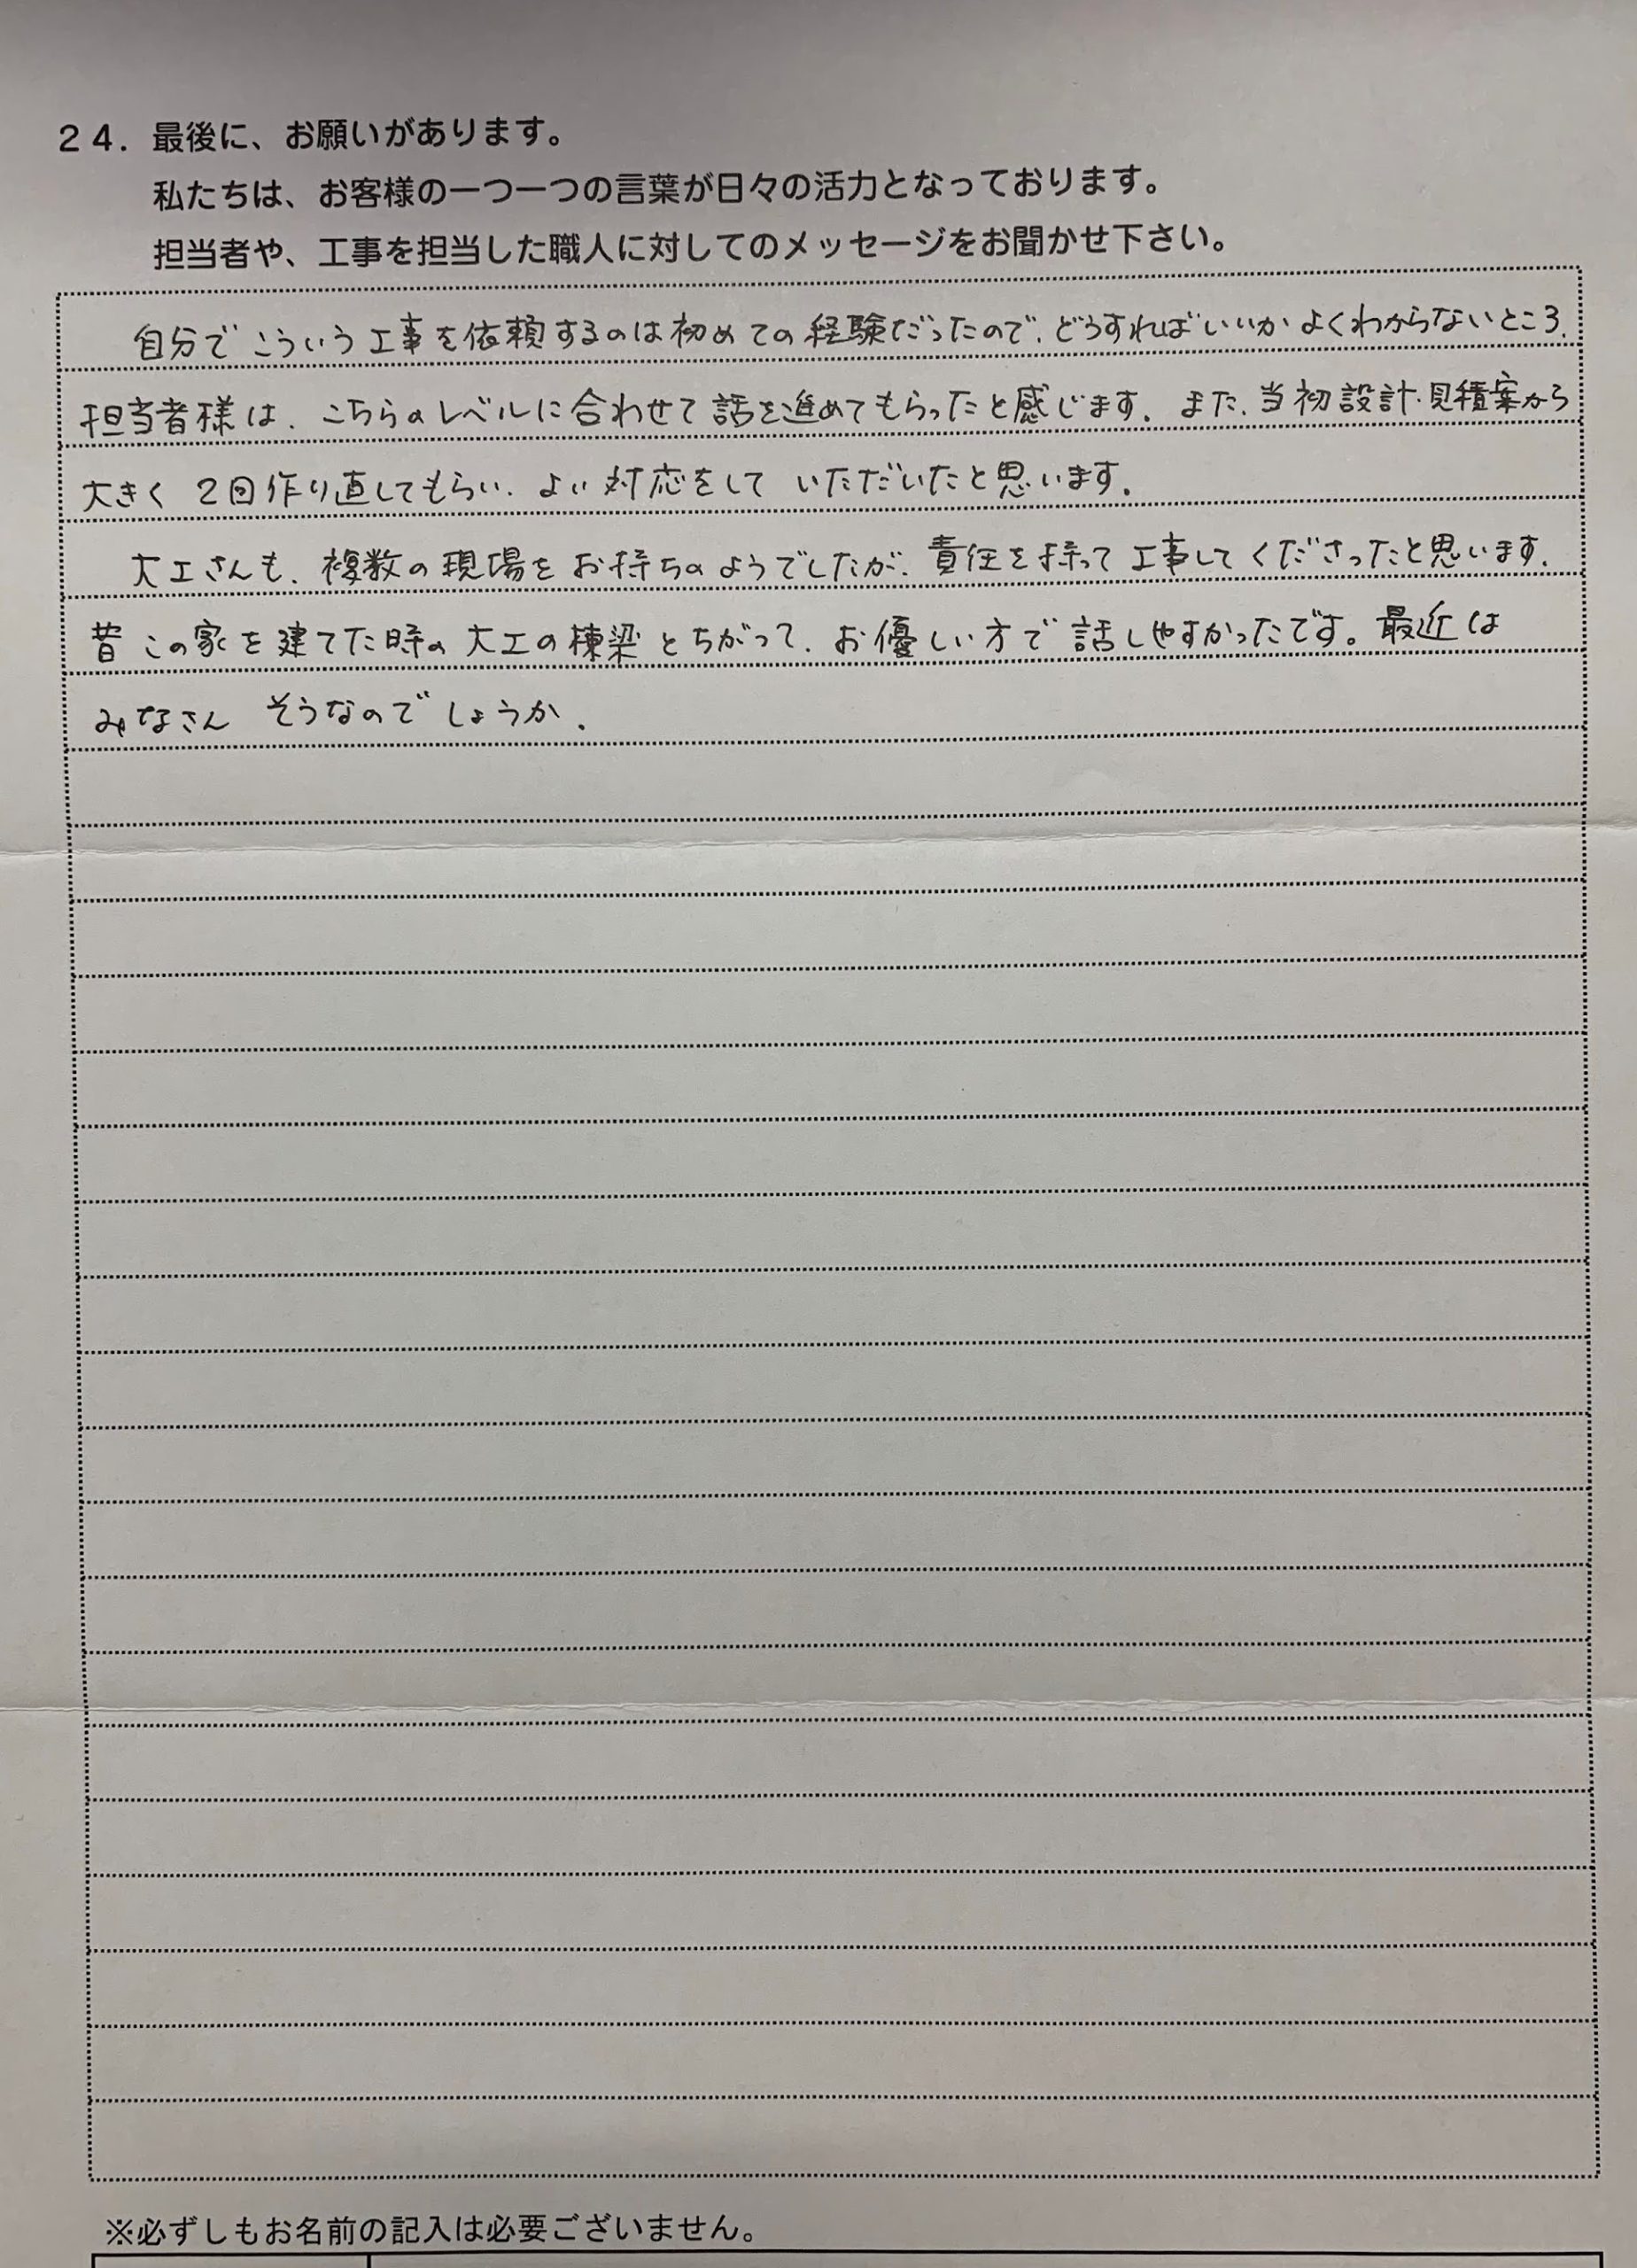 24. 最後に、お願いがあります。
私たちは、お客様の一つ一つの言葉が日々の活力となっております。
担当者や、工事を担当した職人に対してのメッセージをお聞かせ下さい。
自分でこういう工事を依頼するのは初めての経験だったので、どうすればいいかよくわからないところ、
担当者様は、こちらのレベルに合わせて話を進めてもらったと感じます。また、当初設計・見積案から
大きく2回作り直してもらい、よい対応をしていただいたと思います。
大工さんも、複数の現場をお持ちのようでしたが、責任を持って工事してくださったと思います。
昔この家を建てた時の大工の棟梁とちがって、お優しい方で話しやすかったです。最近は
みなさん そうなのでしょうか。
※必ずしもお名前の記入は必要ございません。